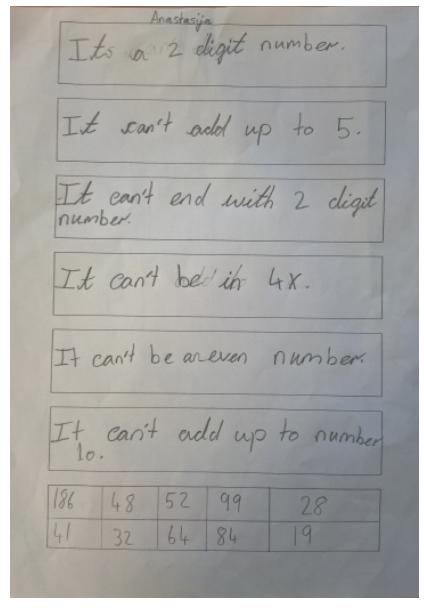 Anastasija
Its a 2 digit number.
It can't add up to 5.
It can't end with 2 digit
number.
It can't be in 4x.
It can't be an even number.
It can't add up to number
10.
186 48 52 99 28
41 32 64 84 19